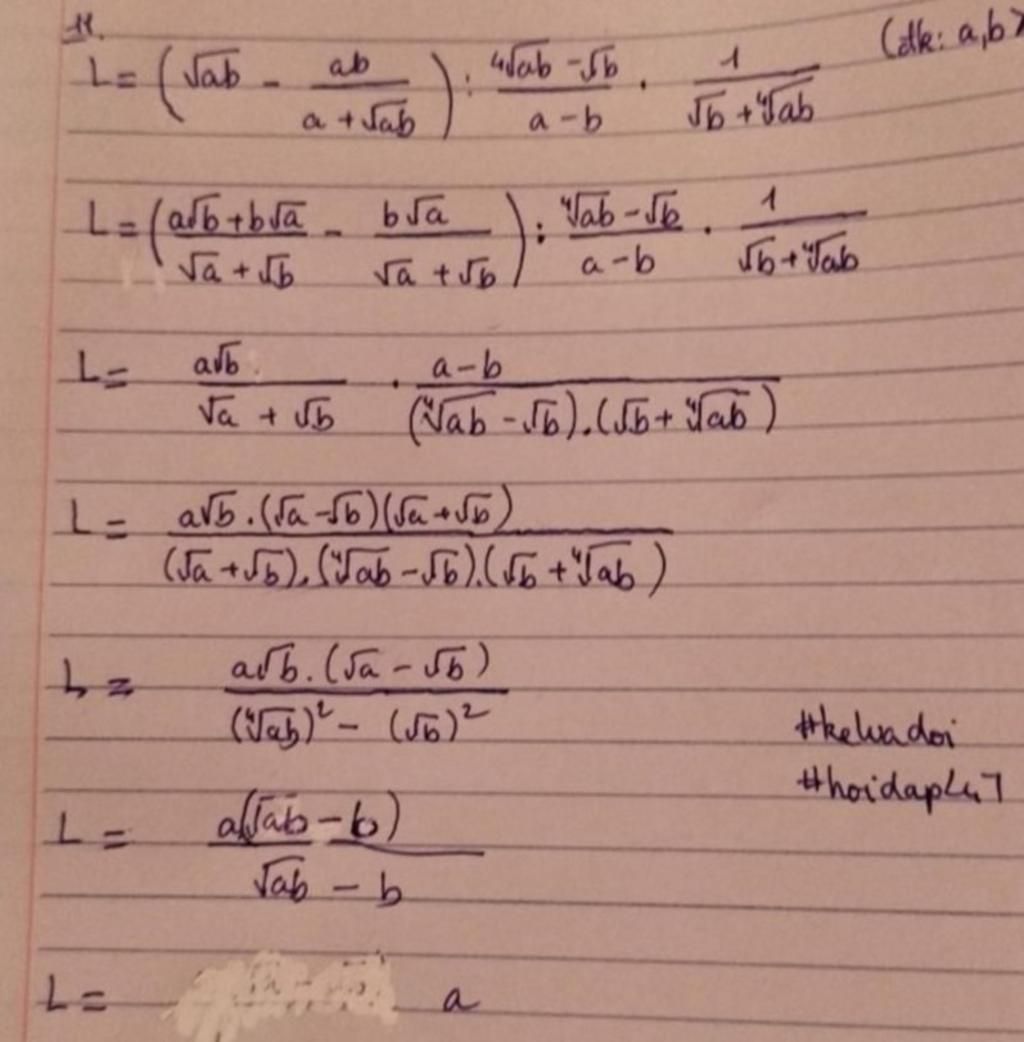 11.
L = (√ab - ab/(a + √ab)) : (⁴√ab - √b)/(a - b) · 1/(√b + ⁴√ab) (đk: a,b >
L = ((a√b + b√a)/(√a + √b) - b√a/(√a + √b)) : (⁴√ab - √b)/(a - b) · 1/(√b + ⁴√ab)
L = a√b/(√a + √b) · (a - b)/((⁴√ab - √b).(√b + ⁴√ab))
L = a√b.(√a - √b)(√a + √b)/((√a + √b).(⁴√ab - √b).(√b + ⁴√ab))
L = a√b.(√a - √b)/((⁴√ab)² - (√b)²)
#keluadoi
#hoidap247
L = a(√ab - b)/(√ab - b)
L = a